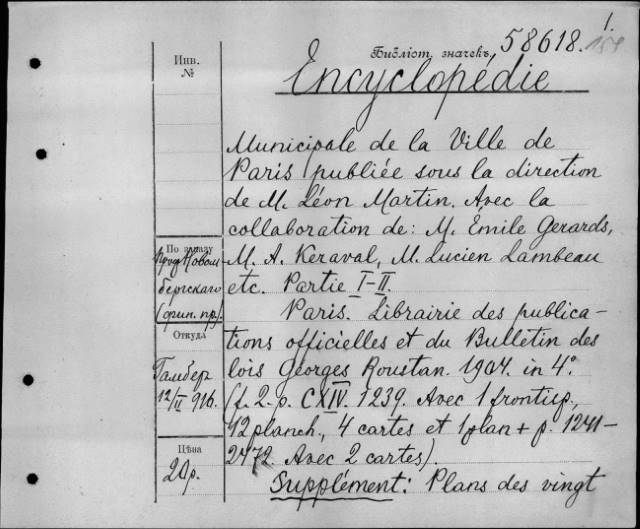 1.
Библіот. значекъ 58618.
Encyclopédie
Инв.
№
Municipale de la Ville de
Paris publiée sous la direction
de M. Léon Martin. Avec la
collaboration de: M. Emile Gerards,
M. A. Keraval, M. Lucien Lambeau
etc. Partie I-II.
Paris. Librairie des publica-
tions officielles et du Bulletin des
lois Georges Roustan. 1904. in 4º.
(f. 2. p. CXIV. 1239. Avec 1 frontisp.,
12 planch., 4 cartes et 1 plan + p. 1241-
2472. Avec 2 cartes).
Supplément: Plans des vingt
По заказу
проф. Новом-
бергскаго
Откуда
Гамбер
12/II 916.
Цѣна
20р.